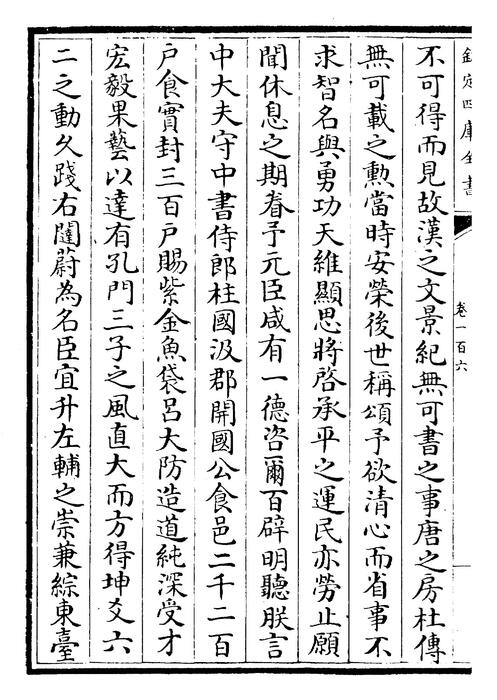 欽定四庫全書
卷一百六
不可得而見故漢之文景紀無可書之事唐之房杜傳
無可載之勲當時安榮後世稱頌予欲清心而省事不
求智名與勇功天維顯思將啓承平之運民亦勞止願
聞休息之期眷予元臣咸有一德咨爾百辟明聽朕言
中大夫守中書侍郎柱國汲郡開國公食邑二千二百
户食實封三百户賜紫金魚袋吕大防造道純深受才
宏毅果藝以達有孔門三子之風直大而方得坤爻六
二之動久踐右闥蔚為名臣宜升左輔之崇兼綜東臺